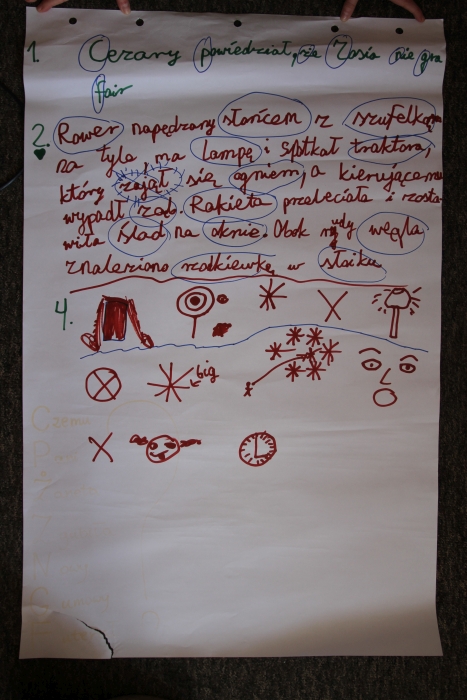 1. Cezary powiedział, że Zosia nie gra
fair
2. Rower napędzany słońcem z szufelką
na tyle ma lampę i spotkał traktora,
który zajął się ogniem, a kierującemu
wypadł ząb. Rakieta przeleciała i zosta-
wiła ślad na oknie. Obok węgla
znaleziono rzodkiewkę w słoiku
4.
big